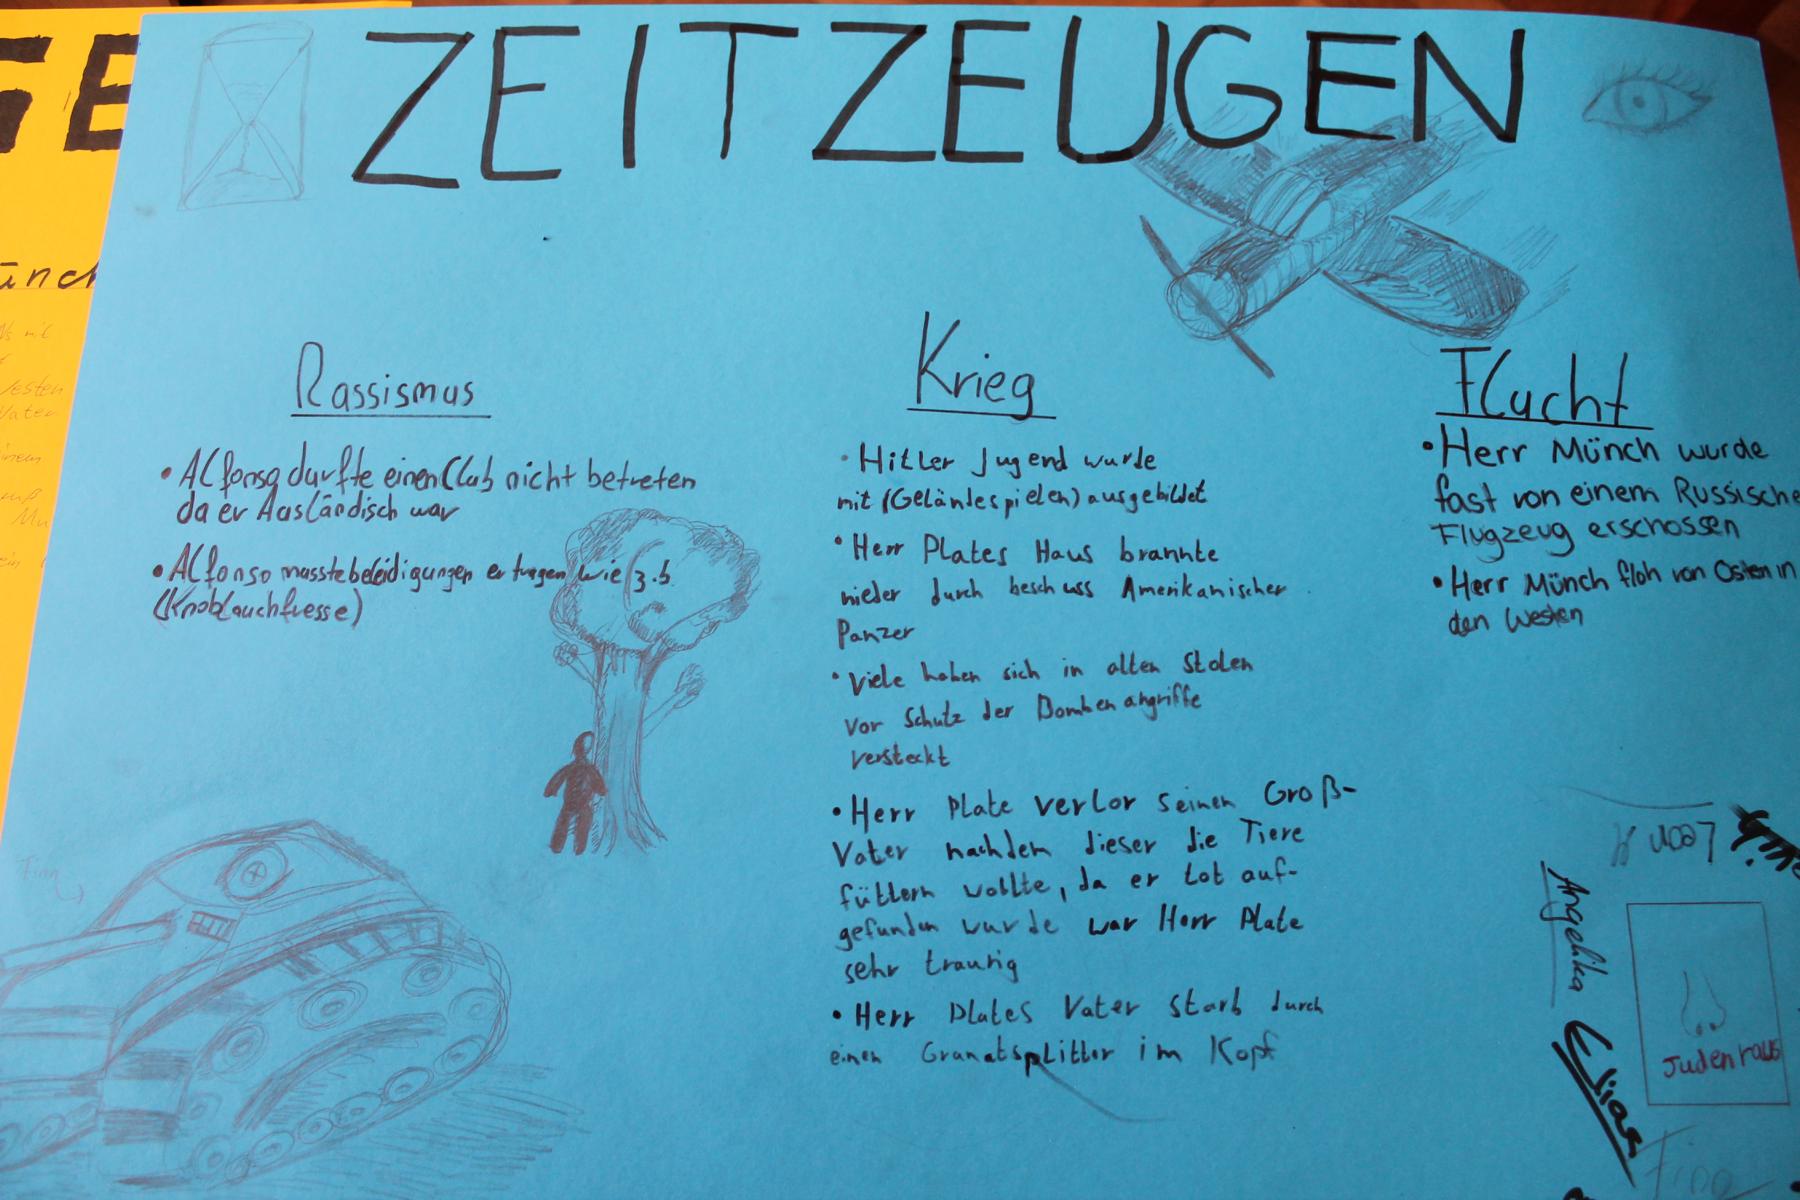 ZEITZEUGEN
Rassismus
• Alfonso durfte einen Club nicht betreten
da er Ausländisch war
• Alfonso musste beleidigungen ertragen wie z.b.
(Knoblauchfresse)
Krieg
• Hitler Jugend wurde
mit (Geländespielen) ausgebildet
• Herr Plates Haus brannte
nieder durch beschuss Amerikanischer
Panzer
• Viele haben sich in alten Stolen
vor Schutz der Bombenangriffe
versteckt
• Herr Plate verlor seinen Groß-
Vater nachdem dieser die Tiere
füttern wollte, da er tot auf-
gefunden wurde war Herr Plate
sehr traurig
• Herr Plates Vater starb durch
einen Granatsplitter im Kopf
Flucht
• Herr Münch wurde
fast von einem Russische
Flugzeug erschossen
• Herr Münch floh von Osten in
den Westen
Leon K
Angelika
Elias
Juden raus
Finn
Finn
GE
ünch